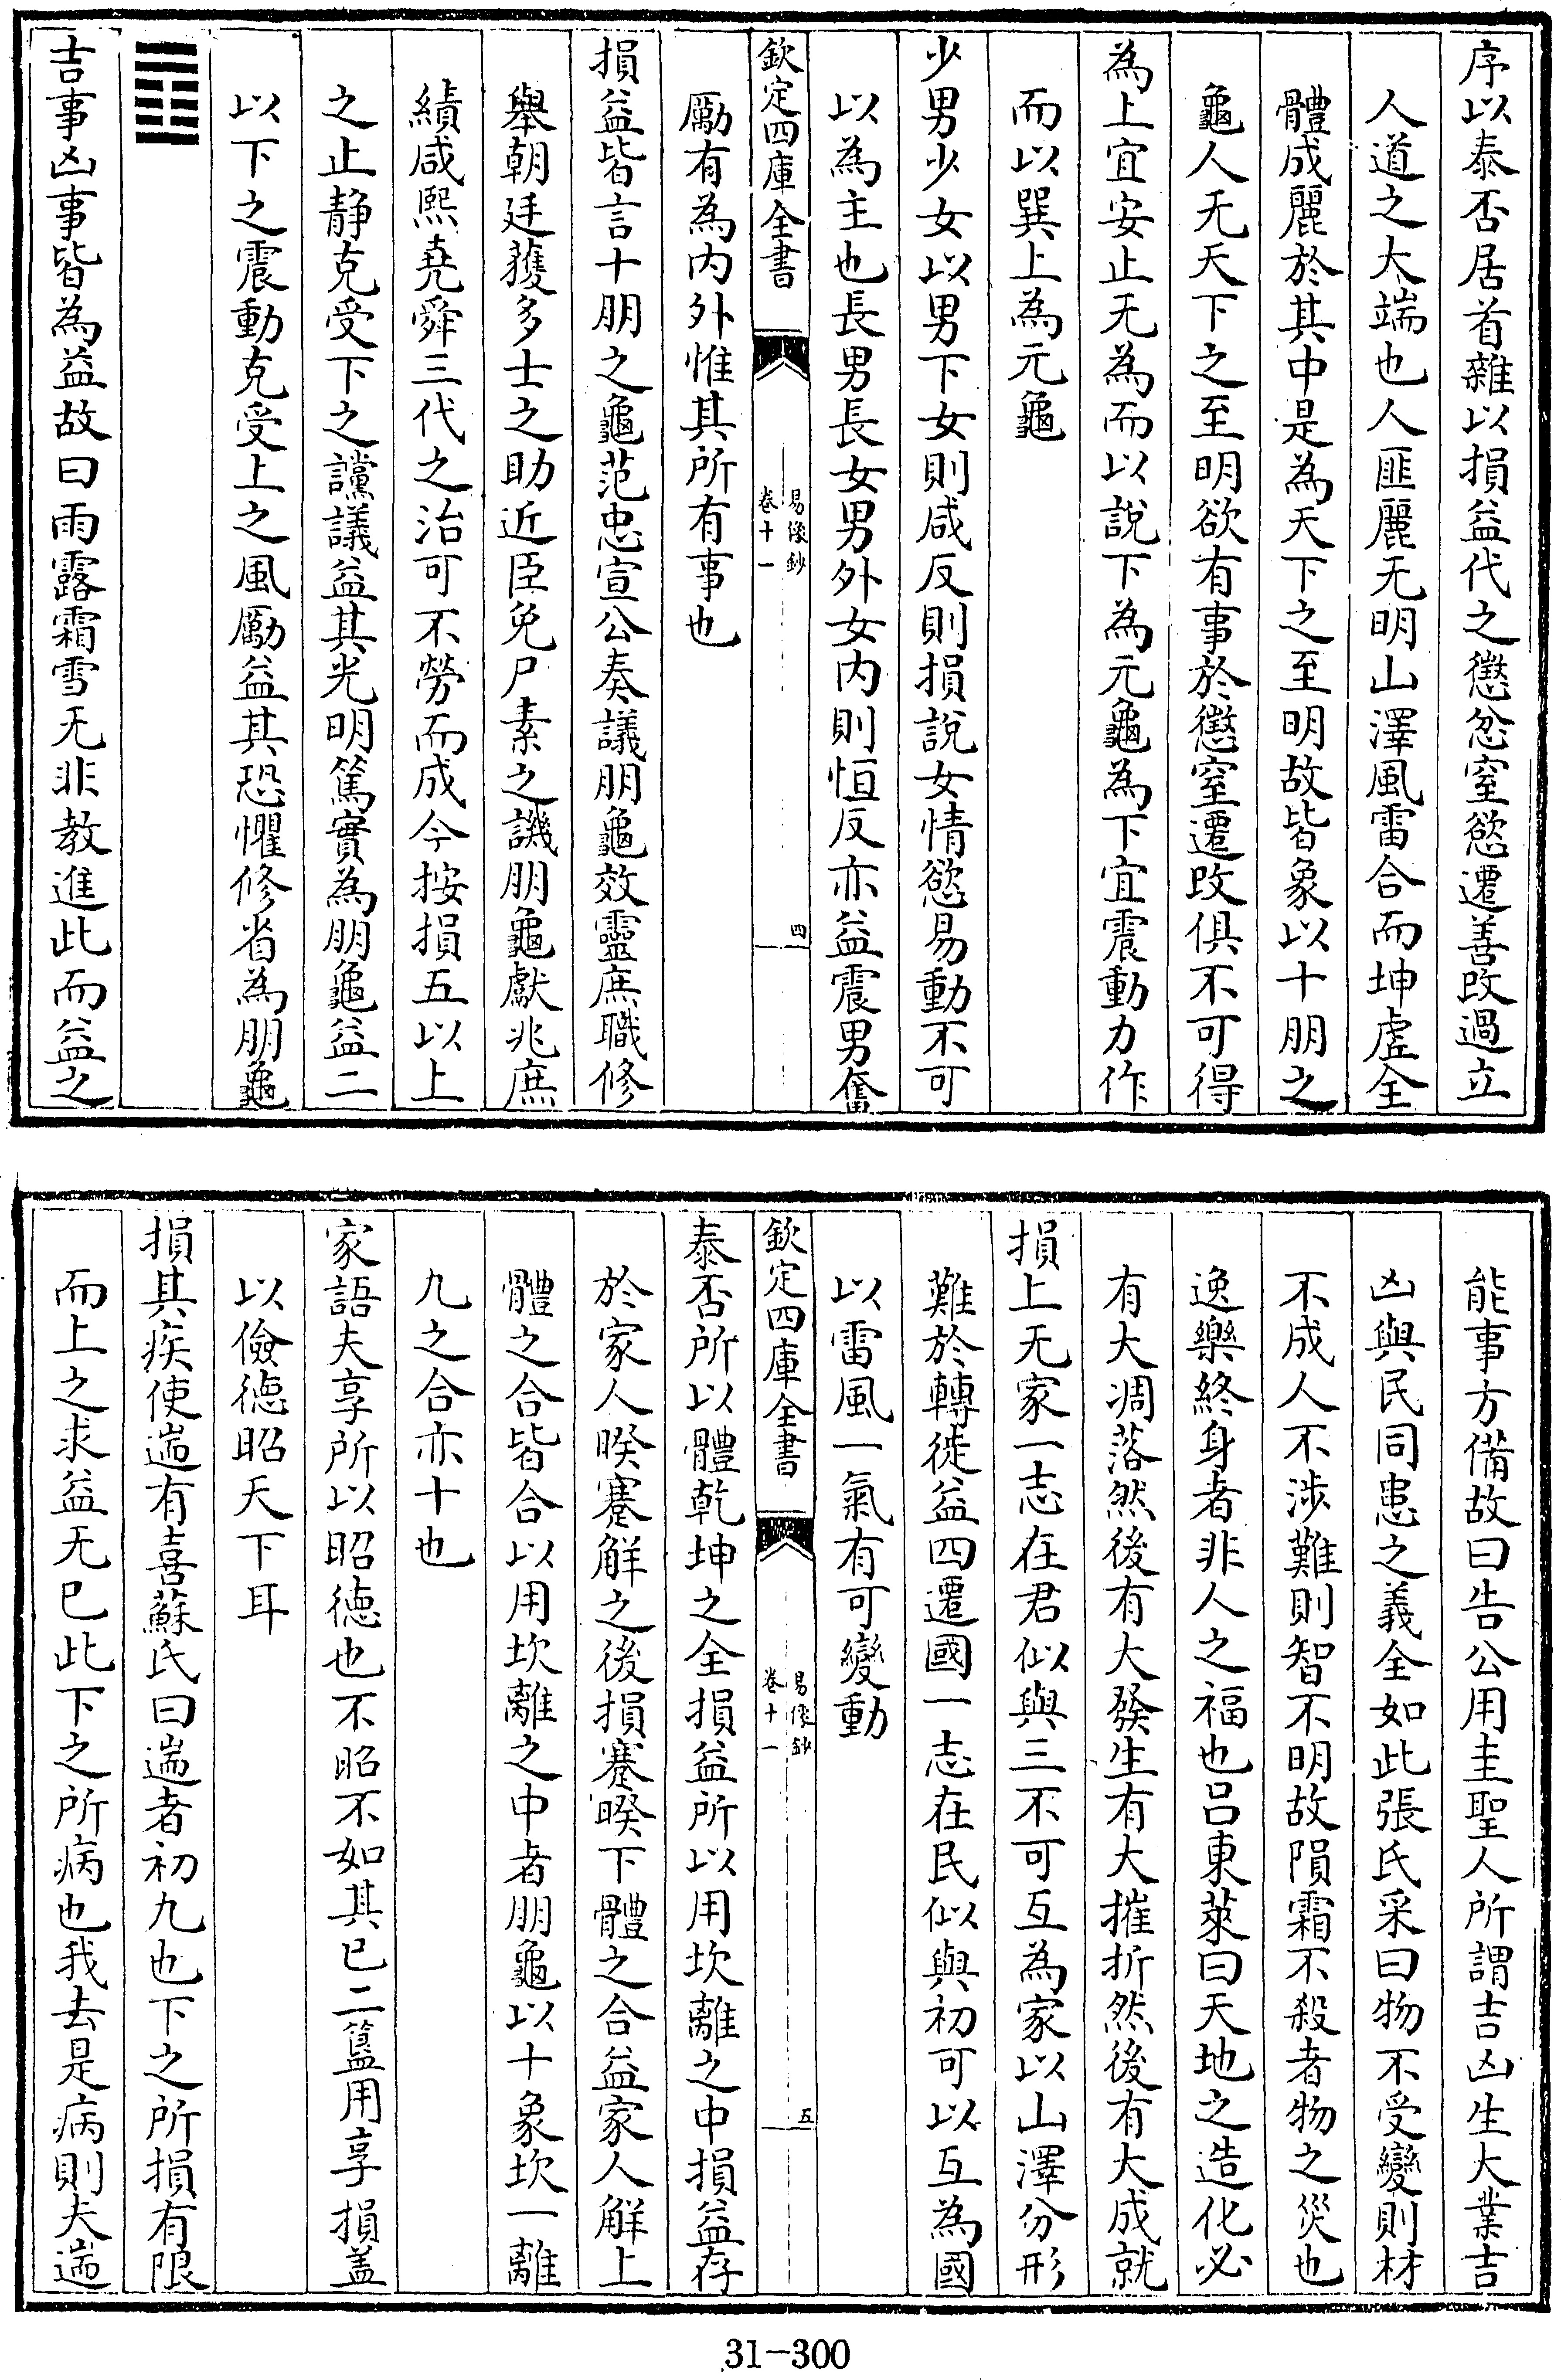 序以泰否居首雜以損益代之懲忿窒慾遷善改過立
人道之大端也人匪麗无明山澤風雷合而坤虛全
體成麗於其中是為天下之至明故皆象以十朋之
龜人无天下之至明欲有事於懲窒遷改俱不可得
為上宜安止无為而以說下為元龜為下宜震動力作
而以巽上為元龜
少男少女以男下女則咸反則損說女情慾易動不可
以為主也長男長女男外女內則恒反亦益震男奮
欽定四庫全書
易像鈔
卷十一
四
勵有為內外惟其所有事也
損益皆言十朋之龜范忠宣公奏議朋龜效靈庶職修
舉朝廷獲多士之助近臣免尸素之譏朋龜獻兆庶
績咸熙堯舜三代之治可不勞而成今按損五以上
之止靜克受下之讜議益其光明篤實為朋龜益二
以下之震動克受上之風勵益其恐懼修省為朋龜
䷩
吉事凶事皆為益故曰雨露霜雪无非教進此而益之
能事方備故曰告公用圭聖人所謂吉凶生大業吉
凶與民同患之義全如此張氏采曰物不受變則材
不成人不涉難則智不明故隕霜不殺者物之災也
逸樂終身者非人之福也呂東萊曰天地之造化必
有大凋落然後有大發生有大摧折然後有大成就
損上无家一志在君似與三不可互為家以山澤分形
難於轉徙益四遷國一志在民似與初可以互為國
以雷風一氣有可變動
欽定四庫全書
易像鈔
卷十一
五
泰否所以體乾坤之全損益所以用坎離之中損益存
於家人睽蹇解之後損蹇睽下體之合益家人解上
體之合皆合以用坎離之中者朋龜以十象坎一離
九之合亦十也
家語夫享所以昭德也不昭不如其已二簋用享損蓋
以儉德昭天下耳
損其疾使遄有喜蘇氏曰遄者初九也下之所損有限
而上之求益无已此下之所病也我去是病則夫遄
31-300